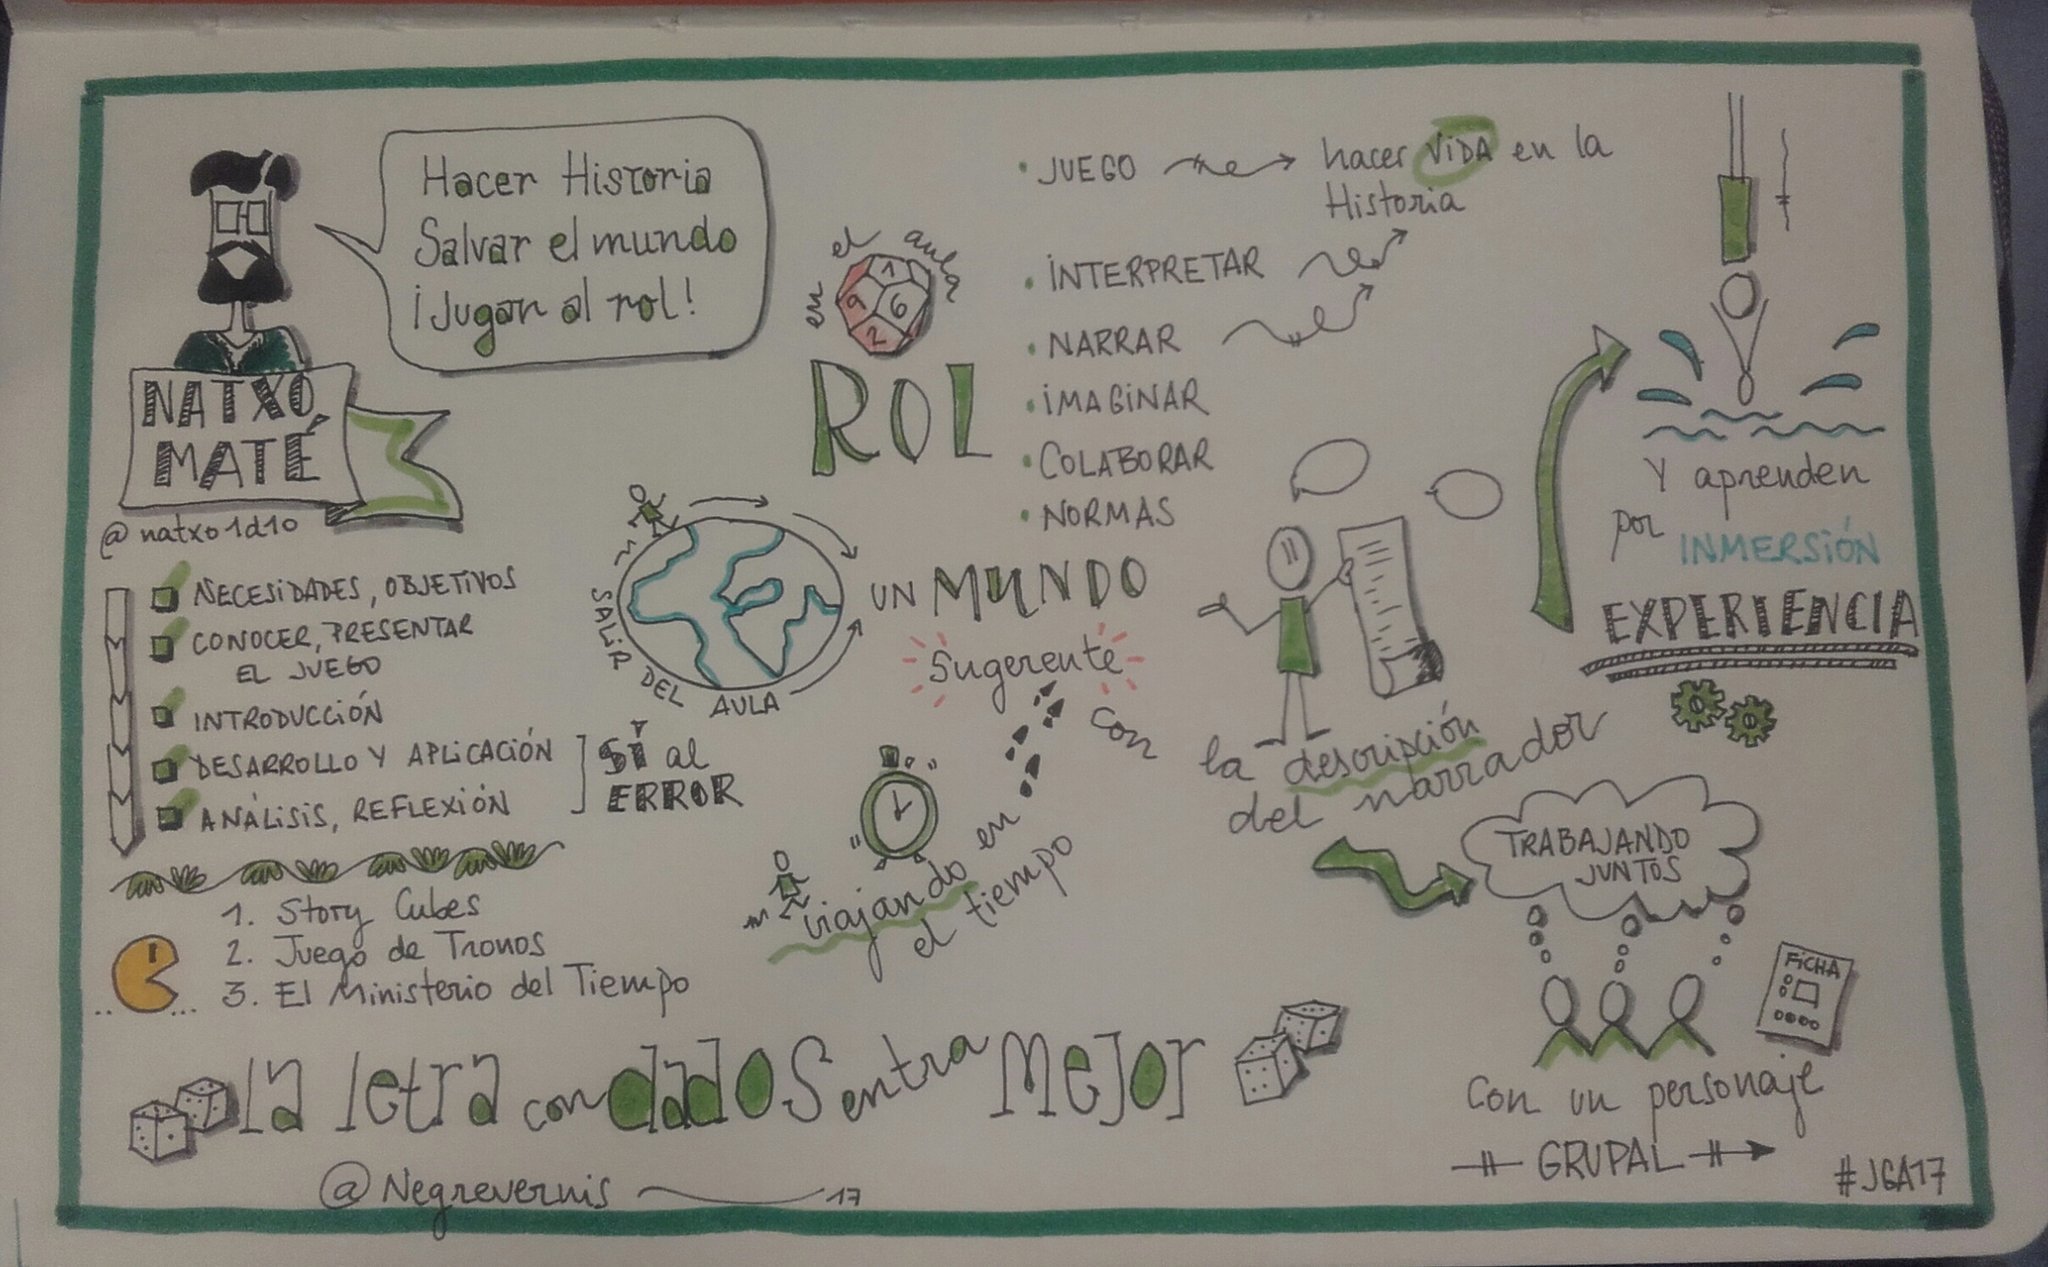 Hacer Historia
Salvar el mundo
¡Jugar al rol!
NATXO
MATÉ
@natxo1d10
NECESIDADES, OBJETIVOS
CONOCER, PRESENTAR
EL JUEGO
INTRODUCCIÓN
DESARROLLO Y APLICACIÓN
ANÁLISIS, REFLEXIÓN
SÍ al
ERROR
1. Story Cubes
2. Juego de Tronos
3. El Ministerio del Tiempo
en el aula
1
9 6
2
ROL
JUEGO
hacer VIDA en la
Historia
INTERPRETAR
NARRAR
IMAGINAR
COLABORAR
NORMAS
SALIR DEL AULA
UN MUNDO
Sugerente
con
la descripción
del narrador
viajando en
el tiempo
Y aprenden
por INMERSIÓN
EXPERIENCIA
TRABAJANDO
JUNTOS
FICHA
Con un personaje
GRUPAL
La letra con dados entra Mejor
@Negrevernis 17
#JGA17